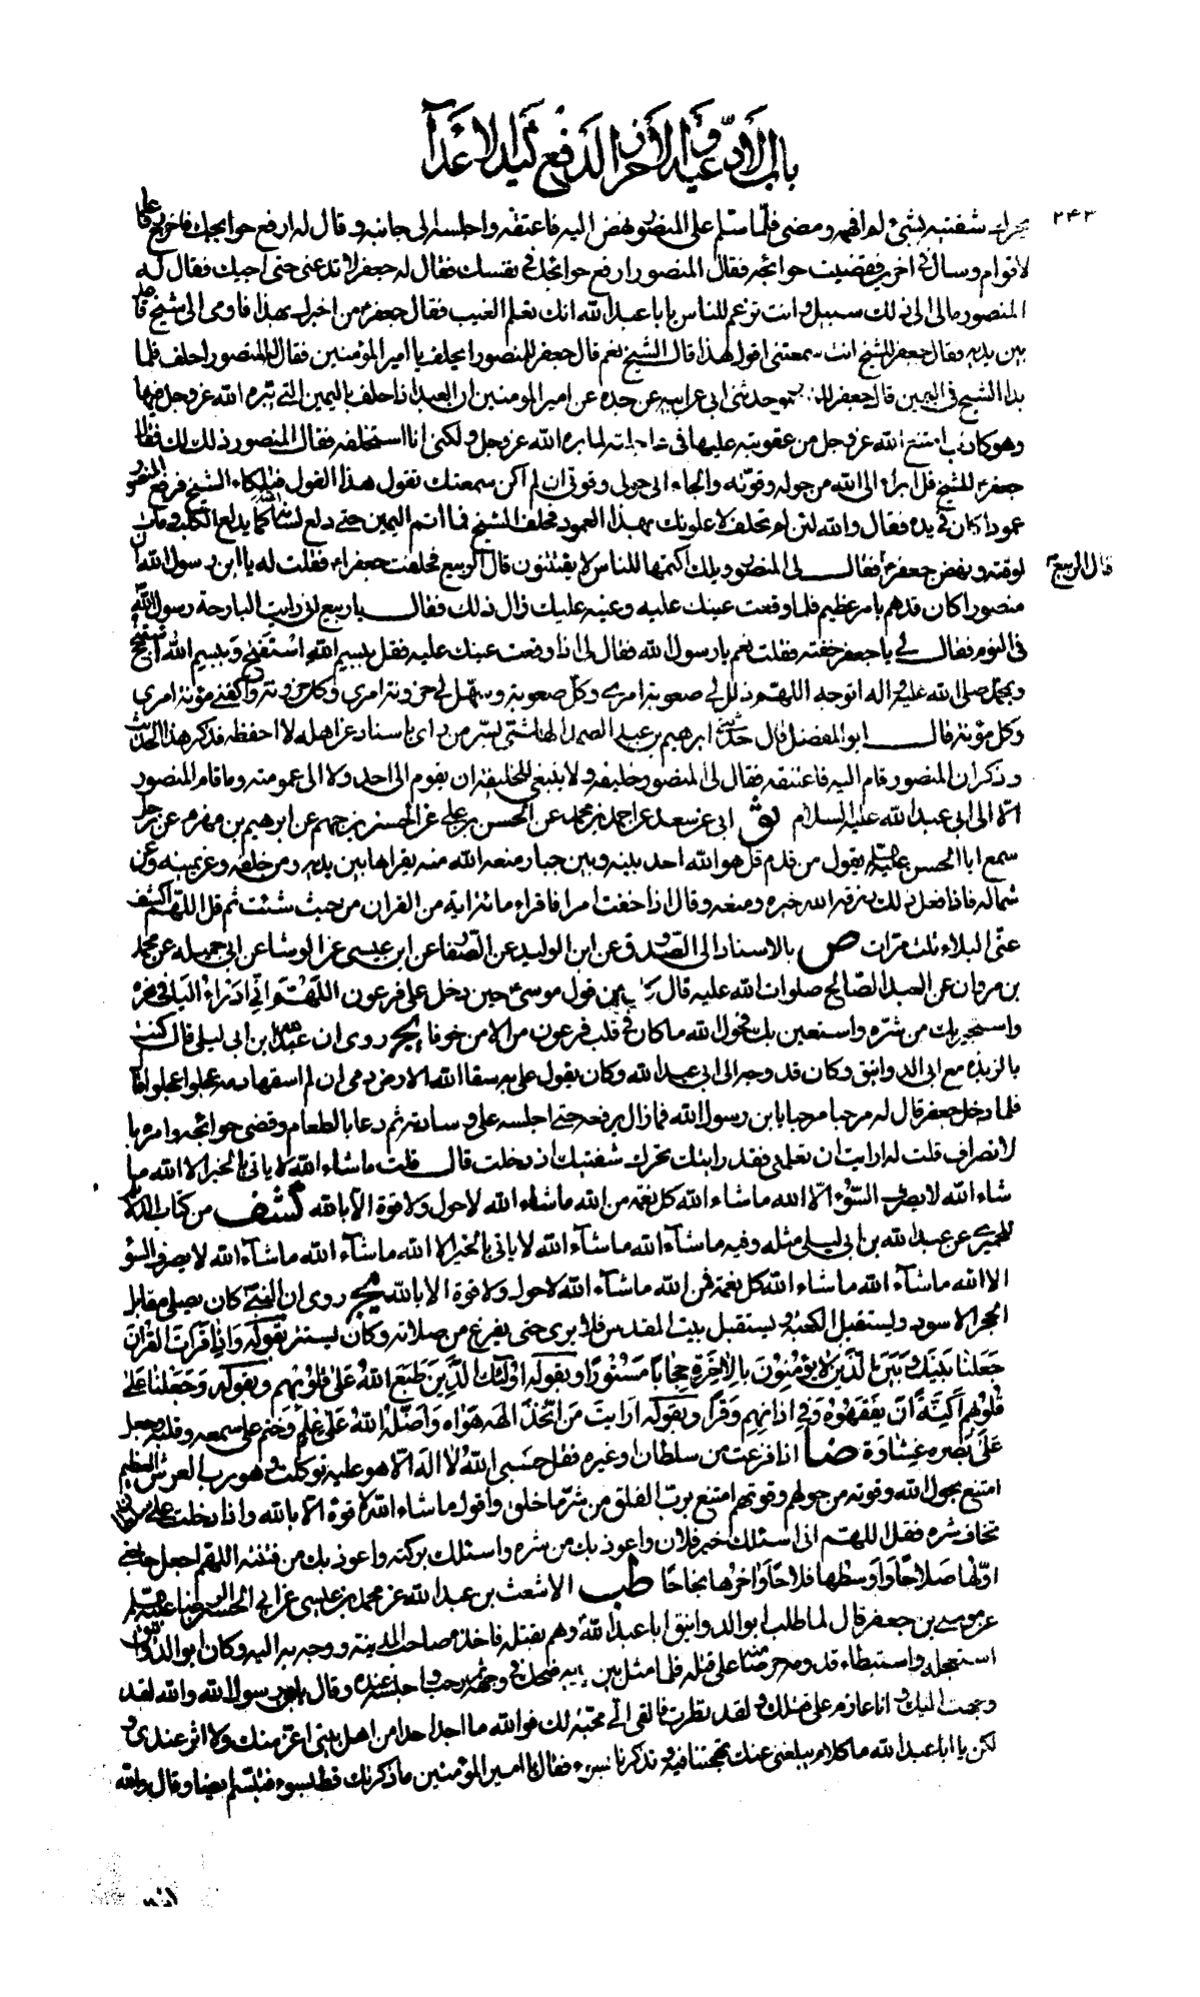 باب الأدعية والأحراز لدفع كيد الأعداء
٢٤٣
يحرك شفتيه بشئ لم افهمه ومضى فلما سلم على المنصور نهض اليه فاعتنقه واجلسه الى جانبه وقال له ارفع حوائجك فاخرج رقاعا
لاقوام وسال فى اخرين فقضيت حوائجه فقال المنصور ارفع حوائجك فى نفسك فقال له جعفر لا تدعنى حتى اجيئك فقال له
المنصور مالى الى ذلك سبيل وانت تزعم للناس يا ابا عبد الله انك تعلم الغيب فقال جعفر من اخبرك بهذا فاومى الى شيخ قاعد
بين يديه فقال جعفر للشيخ انت سمعتنى اقول هذا قال الشيخ نعم قال جعفر للمنصور ايحلف يا امير المؤمنين فقال له المنصور احلف فلما
بدا الشيخ فى اليمين قال جعفر للمنصور حدثنى ابى عن ابيه عن جده عن امير المومنين ان العبد اذا حلف باليمين التى تنزه الله عز وجل فيها
وهو كاذب امتنع الله عز وجل من عقوبته عليها فى عاجلته لما نزه الله عز وجل ولكنى انا استحلفه فقال المنصور ذلك لك فقال
جعفر للشيخ قل ابرأ الى الله من حوله وقوته والجأ الى حولى وقوتى ان لم اكن سمعتك تقول هذا القول فتلكأ الشيخ فرفع المنصور
عمودا كان فى يده فقال والله لئن لم تحلف لاعلونك بهذا العمود فحلف الشيخ فما اتم اليمين حتى دلع لسانه كما يدلع الكلب ومات
لوقته ونهض جعفر فقال لى المنصور ويلك اكتمها للناس لا يفتتنون قال الربيع فحلفت جعفرا فقلت له يا ابن رسول الله ان
قال الربيع
منصورا كان قد هم بامر عظيم فلما وقعت عينك عليه وعينه عليك زال ذلك فقال يا ربيع انى رايت البارحة رسول الله
فى النوم فقال لى يا جعفر خفته فقلت نعم يا رسول الله فقال لى اذا وقعت عينك عليه فقل ببسم الله استفتح وببسم الله استنجح
وبمحمد صلى الله عليه واله اتوجه اللهم ذلل لى صعوبة امرى وكل صعوبة وسهل لى حزونة امرى وكل حزونة واكفنى مؤنة امرى
وكل مؤنة قال ابو المفضل قال حدثنى ابرهيم بن عبد الصمد الهاشمى بسر من راى باسناد عن اهله لا احفظه فذكر هذا الحديث
وذكر ان المنصور قام اليه فاعتنقه فقال لى المنصور خليفة ولا ينبغى للخليفة ان يقوم الى احد ولا الى عمومته وما قام المنصور
الا الى ابى عبد الله عليه السلام ثو ابى عن سعد عن احمد بن محمد عن الحسن بن على عن الحسن بن جهم عن ابرهيم بن مهزم عن رجل
سمع ابا الحسن عليه السلام يقول من قدم قل هو الله احد بينه وبين جبار منعه الله منه يقراها بين يديه ومن خلفه وعن يمينه وعن
شماله فاذا فعل ذلك رزقه الله خيره ومنعه وقال اذا خفت امرا فاقرأ مائة اية من القران من حيث شئت ثم قل اللهم اكشف
عنى البلاء ثلث مرات ص بالاسناد الى الصدوق عن ابن الوليد عن الصفار عن ابن عيسى عن الوشا عن ابى جميله عن محمد
بن مروان عن العبد الصالح صلوات الله عليه قال كان من قول موسى حين دخل على فرعون اللهم انى ادرأ اليك فى نحره
واستجير بك من شره واستعين بك فحول الله ما كان فى قلب فرعون من الامن خوفا يج روى ان عبد الله بن ابى ليلى قال كنت
بالربذة مع ابى الدوانيق وكان قد وجه الى ابى عبد الله وكان يقول على به سقا الله الارض دمى ان لم اسقها دمه عجلوا عجلوا قال
فلما دخل جعفر قال له مرحبا مرحبا يا بن رسول الله فما زال يرفعه حتى اجلسه على وسادته ثم دعا بالطعام وقضى حوائجه وامره با
لانصراف قلت له ارايت ان تعلمنى فقد رايتك تحرك شفتيك اذ دخلت قال قلت ما شاء الله لا ياتى بالخير الا الله ما
شاء الله لا يصرف السوء الا الله ما شاء الله كل نعمة من الله ما شاء الله لا حول ولا قوة الا بالله كشف من كتاب الدلائل
للحميرى عن عبد الله بن ابى ليلى مثله وفيه ما شاء الله ما شاء الله لا ياتى بالخير الا الله ما شاء الله ما شاء الله لا يصرف السوء
الا الله ما شاء الله ما شاء الله كل نعمة فمن الله ما شاء الله لا حول ولا قوة الا بالله يج روى ان النبى كان يصلى مقابل
الحجر الاسود ويستقبل الكعبة ويستقبل بيت المقدس فلا يرى حتى يفرغ من صلاته وكان يستتر بقوله واذا قرات القران
جعلنا بينك وبين الذين لا يؤمنون بالاخرة حجابا مستورا وبقوله اولئك الذين طبع الله على قلوبهم وبقوله وجعلنا على
قلوبهم اكنة ان يفقهوه وفى اذانهم وقرا وبقوله ارايت من اتخذ الهه هواه واضله الله على علم وختم على سمعه وقلبه وجعل
على بصره غشاوة ضا اذا فزعت من سلطان او غيره فقل حسبى الله لا اله الا هو عليه توكلت وهو رب العرش العظيم
امتنع بحول الله وقوته من حولهم وقوتهم امتنع برب الفلق من شر ما خلق واقول ما شاء الله لا قوة الا بالله واذا دخلت على سلطان
تخاف شره فقل اللهم انى اسئلك خير فلان واعوذ بك من شره واسئلك بركته واعوذ بك من فتنته اللهم اجعل حاجتى
اولها صلاحا واوسطها فلاحا واخرها نجاحا طب الاشعث بن عبد الله عن محمد بن عيسى عن ابى الحسن الرضا عليه السلام
عن موسى بن جعفر قال لما طلب ابو الدوانيق ابا عبد الله وهم بقتله فاخذه صاحب المدينة ووجه به اليه وكان ابو الدوانيق
استعجله واستبطاء قدومه حرصا منه على قتله فلما مثل بين يديه ضحك فى وجهه ثم رحب واجلسه عنده وقال يا بن رسول الله والله لقد
وجهت اليك وانا عازم على قتلك ولقد نظرت فالقى الى محبة لك فوالله ما اجد احدا من اهل بيتى اعز منك ولا اثر عندى و
لكن يا ابا عبد الله ما كلام يبلغنى عنك تهجننا فيه وتذكرنا بسوء فقال يا امير المؤمنين ما ذكرتك قط بسوء فتبسم ايضا وقال والله